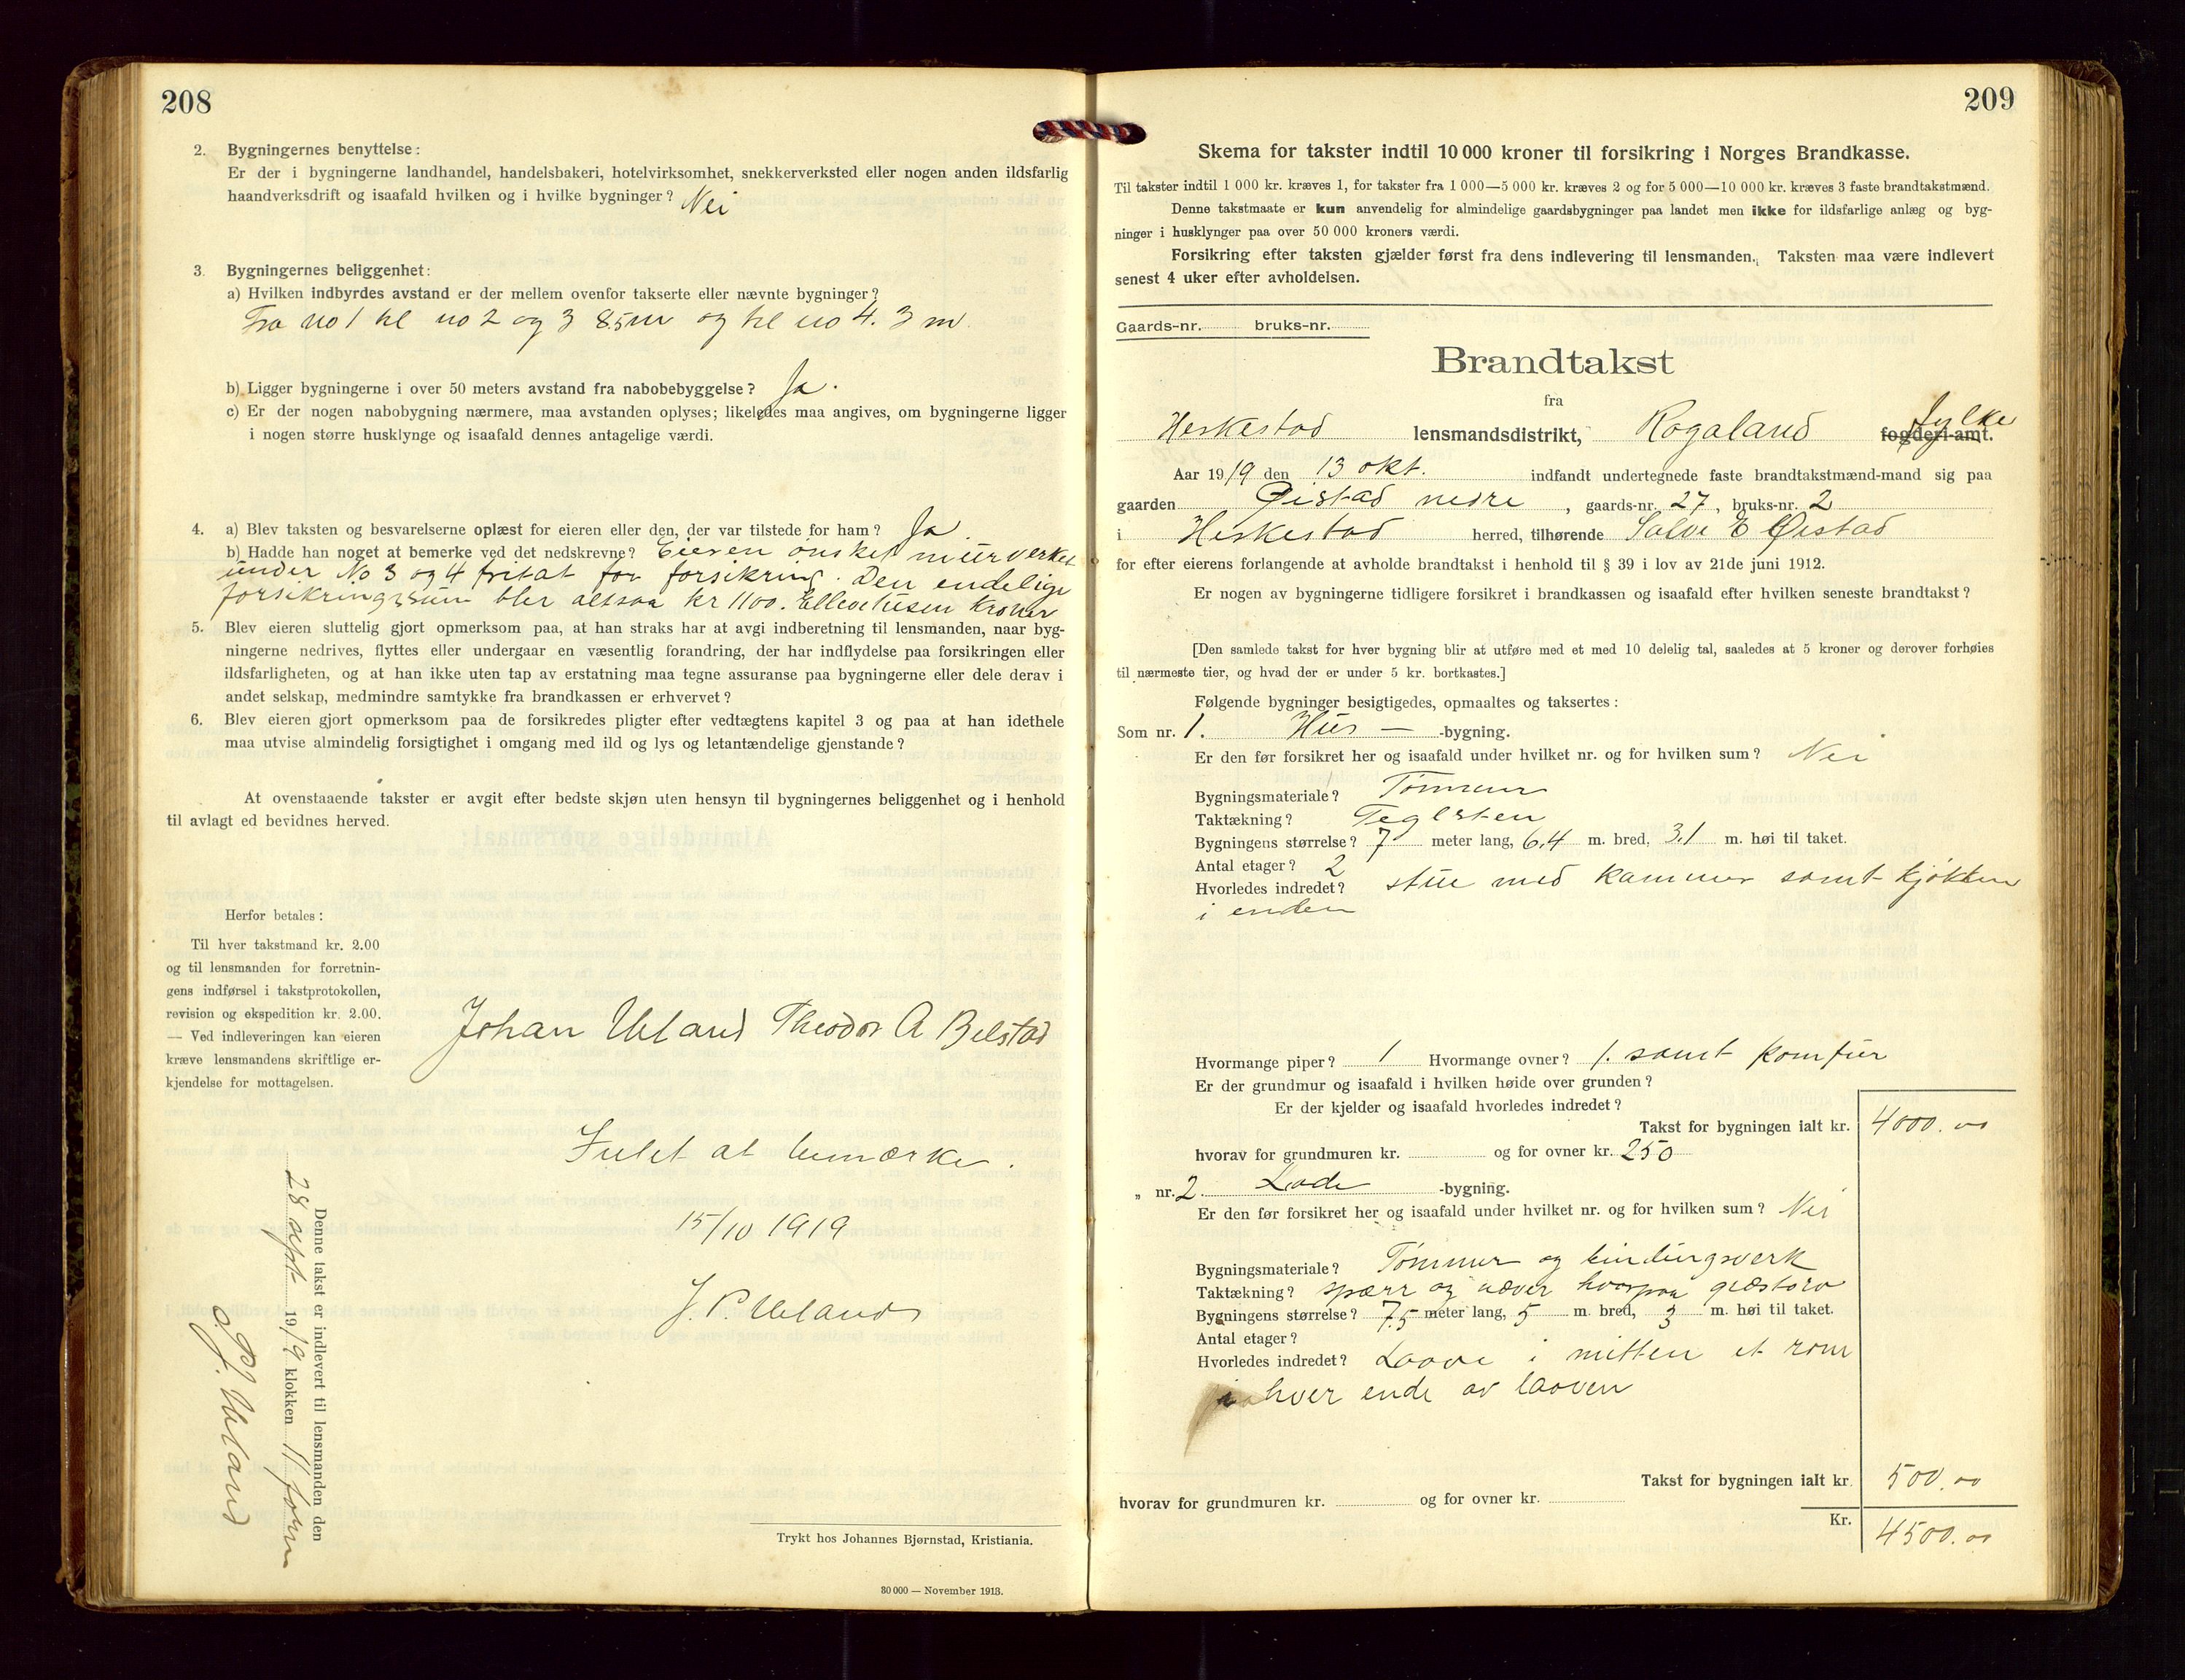 208
2. Bygningernes benyttelse:
Er der i bygningerne landhandel, handelsbakeri, hotelvirksomhet, snekkerverksted eller nogen anden ildsfarlig
haandverksdrift og isaafald hvilken og i hvilke bygninger? Nei
3. Bygningernes beliggenhet:
a) Hvilken indbyrdes avstand er der mellem ovenfor takserte eller nævnte bygninger?
Fra no 1 til no 2 og 3 85m og til no 4. 3 m.
b) Ligger bygningerne i over 50 meters avstand fra nabobebyggelse? Ja.
c) Er der nogen nabobygning nærmere, maa avstanden oplyses; likeledes maa angives, om bygningerne ligger
i nogen større husklynge og isaafald dennes antagelige værdi.
4. a) Blev taksten og besvarelserne oplæst for eieren eller den, der var tilstede for ham? Ja
b) Hadde han noget at bemerke ved det nedskrevne? Eieren ønsker murverket
under No 3 og 4 fritat for forsikring. Den endelige
forsikringssum blir altsaa kr 1100. Ellevetusen kroner
5. Blev eieren sluttelig gjort opmerksom paa, at han straks har at avgi indberetning til lensmanden, naar byg-
ningerne nedrives, flyttes eller undergaar en væsentlig forandring, der har indflydelse paa forsikringen eller
ildsfarligheten, og at han ikke uten tap av erstatning maa tegne assuranse paa bygningerne eller dele derav i
andet selskap, medmindre samtykke fra brandkassen er erhvervet?
6. Blev eieren gjort opmerksom paa de forsikredes pligter efter vedtægtens kapitel 3 og paa at han idethele
maa utvise almindelig forsigtighet i omgang med ild og lys og letantændelige gjenstande?
At ovenstaaende takster er avgit efter bedste skjøn uten hensyn til bygningernes beliggenhet og i henhold
til avlagt ed bevidnes herved.
Herfor betales:
Til hver takstmand kr. 2.00
og til lensmanden for forretnin-
gens indførsel i takstprotokollen,
revision og ekspedition kr. 2.00.
— Ved indleveringen kan eieren
kræve lensmandens skriftlige er-
kjendelse for mottagelsen.
Johan Ueland Theodor A Belstad
Intet at bemærke.
15/10 1919
J. P. Ueland
Denne takst er indlevert til lensmanden den
28 sept 1919 klokken 11 form
J. P. Ueland
Trykt hos Johannes Bjørnstad, Kristiania.
30 000 — November 1913.
209
Skema for takster indtil 10 000 kroner til forsikring i Norges Brandkasse.
Til takster indtil 1 000 kr. kræves 1, for takster fra 1 000—5 000 kr. kræves 2 og for 5 000—10 000 kr. kræves 3 faste brandtakstmænd.
Denne takstmaate er kun anvendelig for almindelige gaardsbygninger paa landet men ikke for ildsfarlige anlæg og byg-
ninger i husklynger paa over 50 000 kroners værdi.
Forsikring efter taksten gjælder først fra dens indlevering til lensmanden. Taksten maa være indlevert
senest 4 uker efter avholdelsen.
Gaards-nr. bruks-nr.
Brandtakst
fra
Heskestad lensmandsdistrikt, Rogaland fogderi-amt. fylke
Aar 1919 den 13 okt. indfandt undertegnede faste brandtakstmænd-mand sig paa
gaarden Øistad nedre, gaards-nr. 27, bruks-nr. 2
i Heskestad herred, tilhørende Salve E Øistad
for efter eierens forlangende at avholde brandtakst i henhold til § 39 i lov av 21de juni 1912.
Er nogen av bygningerne tidligere forsikret i brandkassen og isaafald efter hvilken seneste brandtakst?
[Den samlede takst for hver bygning blir at utføre med et med 10 delelig tal, saaledes at 5 kroner og derover forhøies
til nærmeste tier, og hvad der er under 5 kr. bortkastes.]
Følgende bygninger besigtigedes, opmaaltes og taksertes:
Som nr. 1. Hus — -bygning.
Er den før forsikret her og isaafald under hvilket nr. og for hvilken sum? Nei
Bygningsmateriale? Tømmer
Taktækning? Teglsten
Bygningens størrelse? 7 meter lang, 6,4 m. bred, 3,1 m. høi til taket.
Antal etager? 2
Hvorledes indredet? stue med kammer samt kjøkken
i enden
Hvormange piper? 1 Hvormange ovner? 1. samt komfur
Er der grundmur og isaafald i hvilken høide over grunden?
Er der kjelder og isaafald hvorledes indredet?
Takst for bygningen ialt kr. 4000.00
hvorav for grundmuren kr. og for ovner kr. 250
„ nr. 2. Lade -bygning.
Er den før forsikret her og isaafald under hvilket nr. og for hvilken sum? Nei
Bygningsmateriale? Tømmer og bindingsverk
Taktækning? spærr og næver hvorpaa græstorv
Bygningens størrelse? 7,5 meter lang, 5 m. bred, 3 m. høi til taket.
Antal etager?
Hvorledes indredet? Laave i mitten et rom
i hver ende av laaven
Takst for bygningen ialt kr. 500.00
hvorav for grundmuren kr. og for ovner kr.
Kr. 4500.00